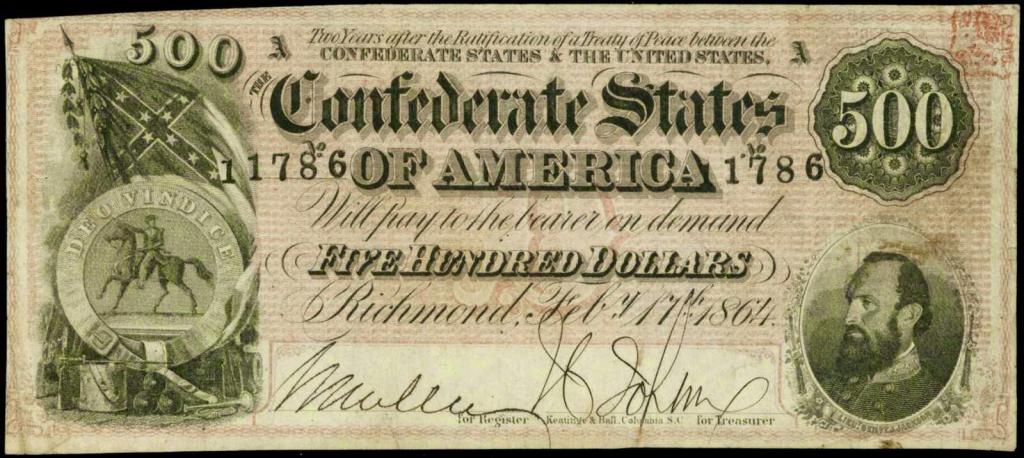 500 A Two Years after the Ratification of a Treaty of Peace between the A
CONFEDERATE STATES & THE UNITED STATES,
THE
Confederate States
500
No 11786 OF AMERICA No 1786
DEO VINDICE
Will pay to the bearer on demand
FIVE HUNDRED DOLLARS
Richmond, Feby 17th 1864.
for Register Keatinge & Ball, Columbia S.C. for Treasurer